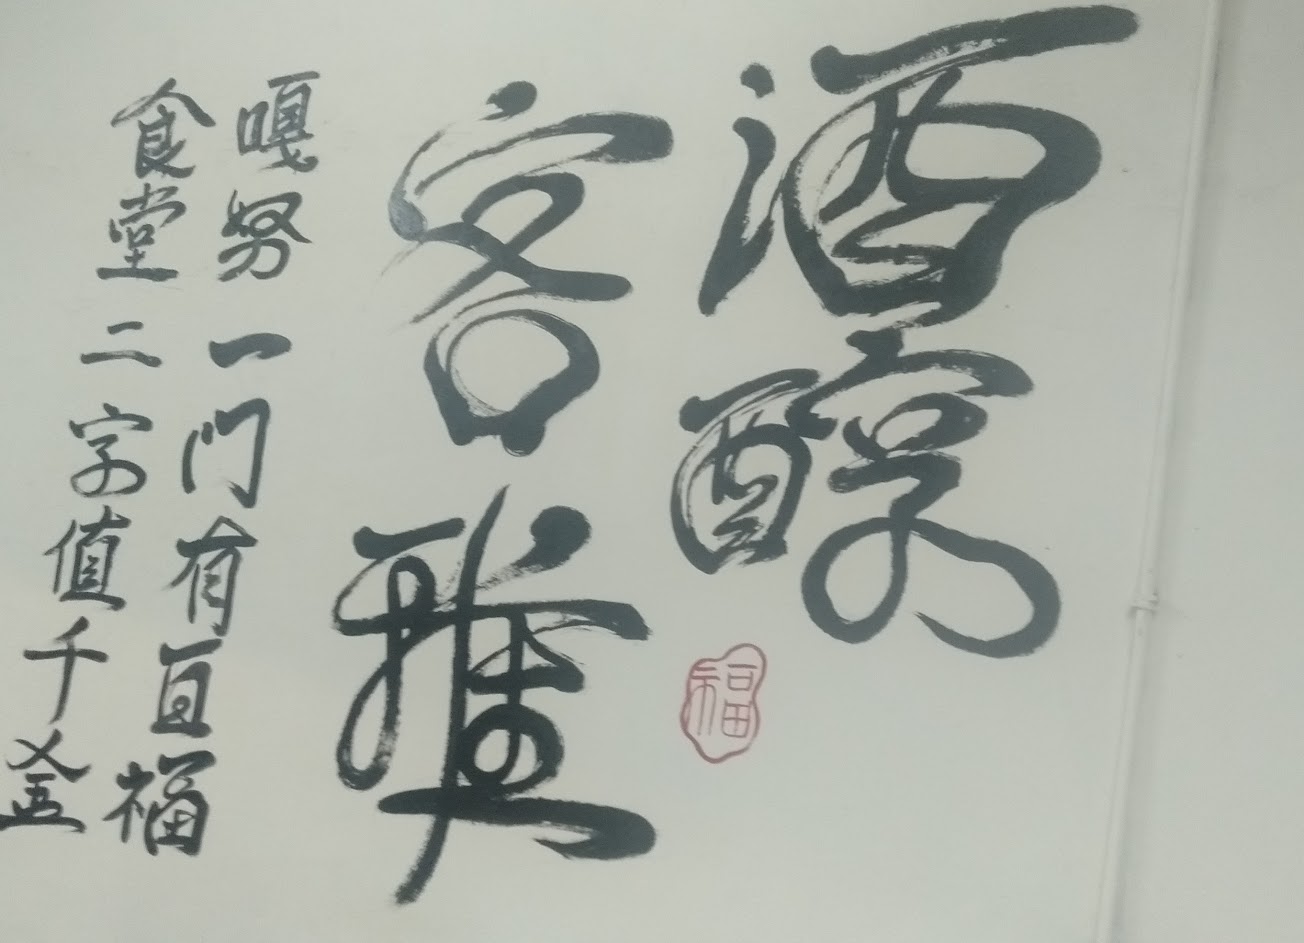 酒醇
客雅
福
嘎努一門有百福
食堂二字值千金